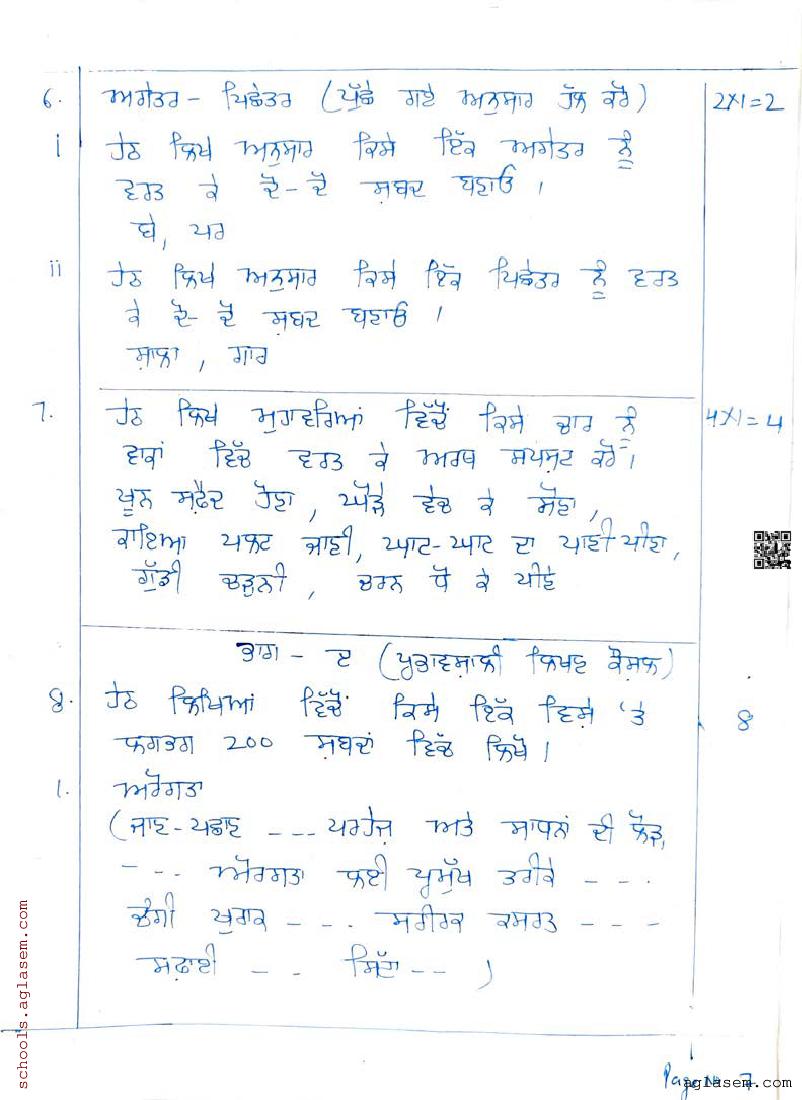 6. ਅਗੇਤਰ - ਪਿਛੇਤਰ (ਪੁੱਛੇ ਗਏ ਅਨੁਸਾਰ ਹੱਲ ਕਰੋ) 2×1=2
i ਹੇਠ ਲਿਖੇ ਅਨੁਸਾਰ ਕਿਸੇ ਇੱਕ ਅਗੇਤਰ ਨੂੰ
ਵਰਤ ਕੇ ਦੋ-ਦੋ ਸ਼ਬਦ ਬਣਾਓ ।
ਬੇ, ਪਰ
ii ਹੇਠ ਲਿਖੇ ਅਨੁਸਾਰ ਕਿਸੇ ਇੱਕ ਪਿਛੇਤਰ ਨੂੰ ਵਰਤ
ਕੇ ਦੋ-ਦੋ ਸ਼ਬਦ ਬਣਾਓ ।
ਸ਼ਾਲਾ , ਗਾਰ
7. ਹੇਠ ਲਿਖੇ ਮੁਹਾਵਰਿਆਂ ਵਿੱਚੋਂ ਕਿਸੇ ਚਾਰ ਨੂੰ 4×1=4
ਵਾਕਾਂ ਵਿੱਚ ਵਰਤ ਕੇ ਅਰਥ ਸਪਸ਼ਟ ਕਰੋ ।
ਖੂਨ ਸਫ਼ੈਦ ਹੋਣਾ , ਘੋੜੇ ਵੇਚ ਕੇ ਸੌਣਾ ,
ਕਾਇਆ ਪਲਟ ਜਾਣੀ, ਘਾਟ-ਘਾਟ ਦਾ ਪਾਣੀ ਪੀਣਾ,
ਗੁੱਡੀ ਚੜ੍ਹਨੀ , ਚਰਨ ਧੋ ਕੇ ਪੀਣੇ
ਭਾਗ - ੲ (ਪ੍ਰਭਾਵਸ਼ਾਲੀ ਲਿਖਣ ਕੌਸ਼ਲ)
8. ਹੇਠ ਲਿਖਿਆਂ ਵਿੱਚੋਂ ਕਿਸੇ ਇੱਕ ਵਿਸ਼ੇ 'ਤੇ 8
ਲਗਭਗ 200 ਸ਼ਬਦਾਂ ਵਿੱਚ ਲਿਖੋ ।
1. ਅਰੋਗਤਾ
(ਜਾਣ-ਪਛਾਣ --- ਪਰਹੇਜ਼ ਅਤੇ ਸਾਧਨਾਂ ਦੀ ਲੋੜ,
--- ਅਰੋਗਤਾ ਲਈ ਪ੍ਰਮੁੱਖ ਤਰੀਕੇ ---
ਚੰਗੀ ਖੁਰਾਕ --- ਸਰੀਰਕ ਕਸਰਤ ---
ਸਫ਼ਾਈ -- ਸਿੱਟਾ -- )
Page No 7
aglasem.com
schools.aglasem.com